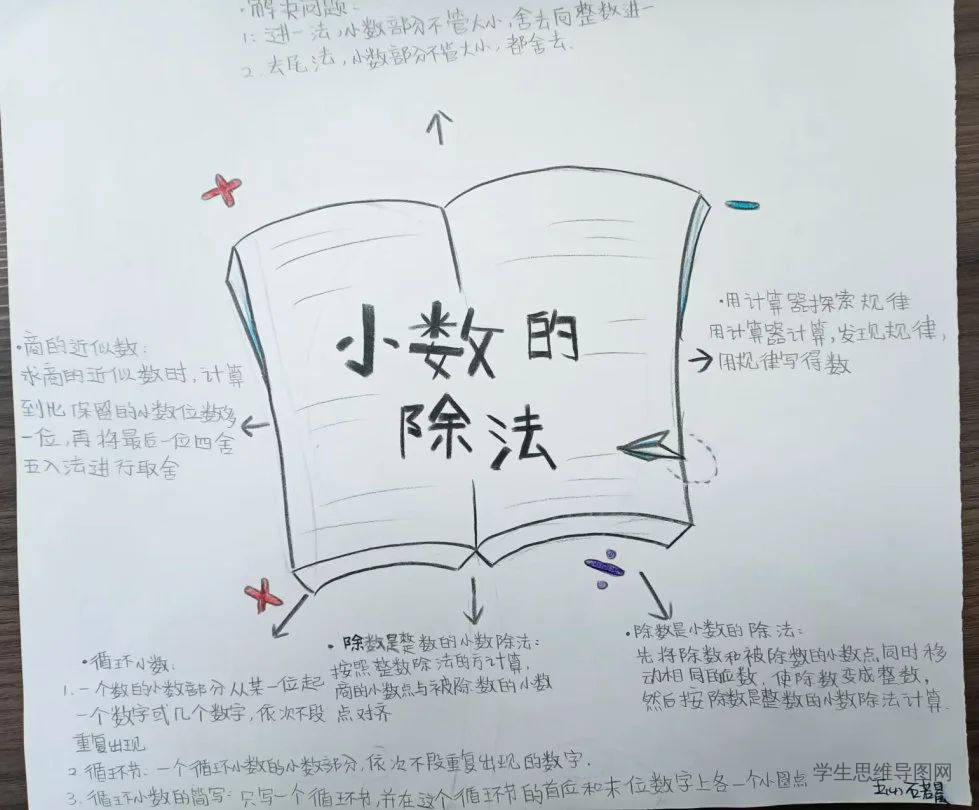 ·解决问题:
1: 进一法,小数部分不管大小,舍去向整数进一
2. 去尾法,小数部分不管大小,都舍去.
小数的
除法
·商的近似数:
求商的近似数时,计算
到比保留的小数位数多
一位,再将最后一位四舍
五入法进行取舍
·用计算器探索规律
用计算器计算,发现规律,
用规律写得数
·循环小数:
1. 一个数的小数部分从某一位起
一个数字或几个数字,依次不段
重复出现
2 循环节: 一个循环小数的小数部分,依次不段重复出现的数字.
3. 循环小数的简写: 只写一个循环节,并在这个循环节的首位和末位数字上各一个小圆点
·除数是整数的小数除法:
按照整数除法的方计算,
商的小数点与被除数的小数
点对齐
·除数是小数的除法:
先将除数和被除数的小数点同时移
动相同的位数,使除数变成整数,
然后按除数是整数的小数除法计算.
学生思维导图网